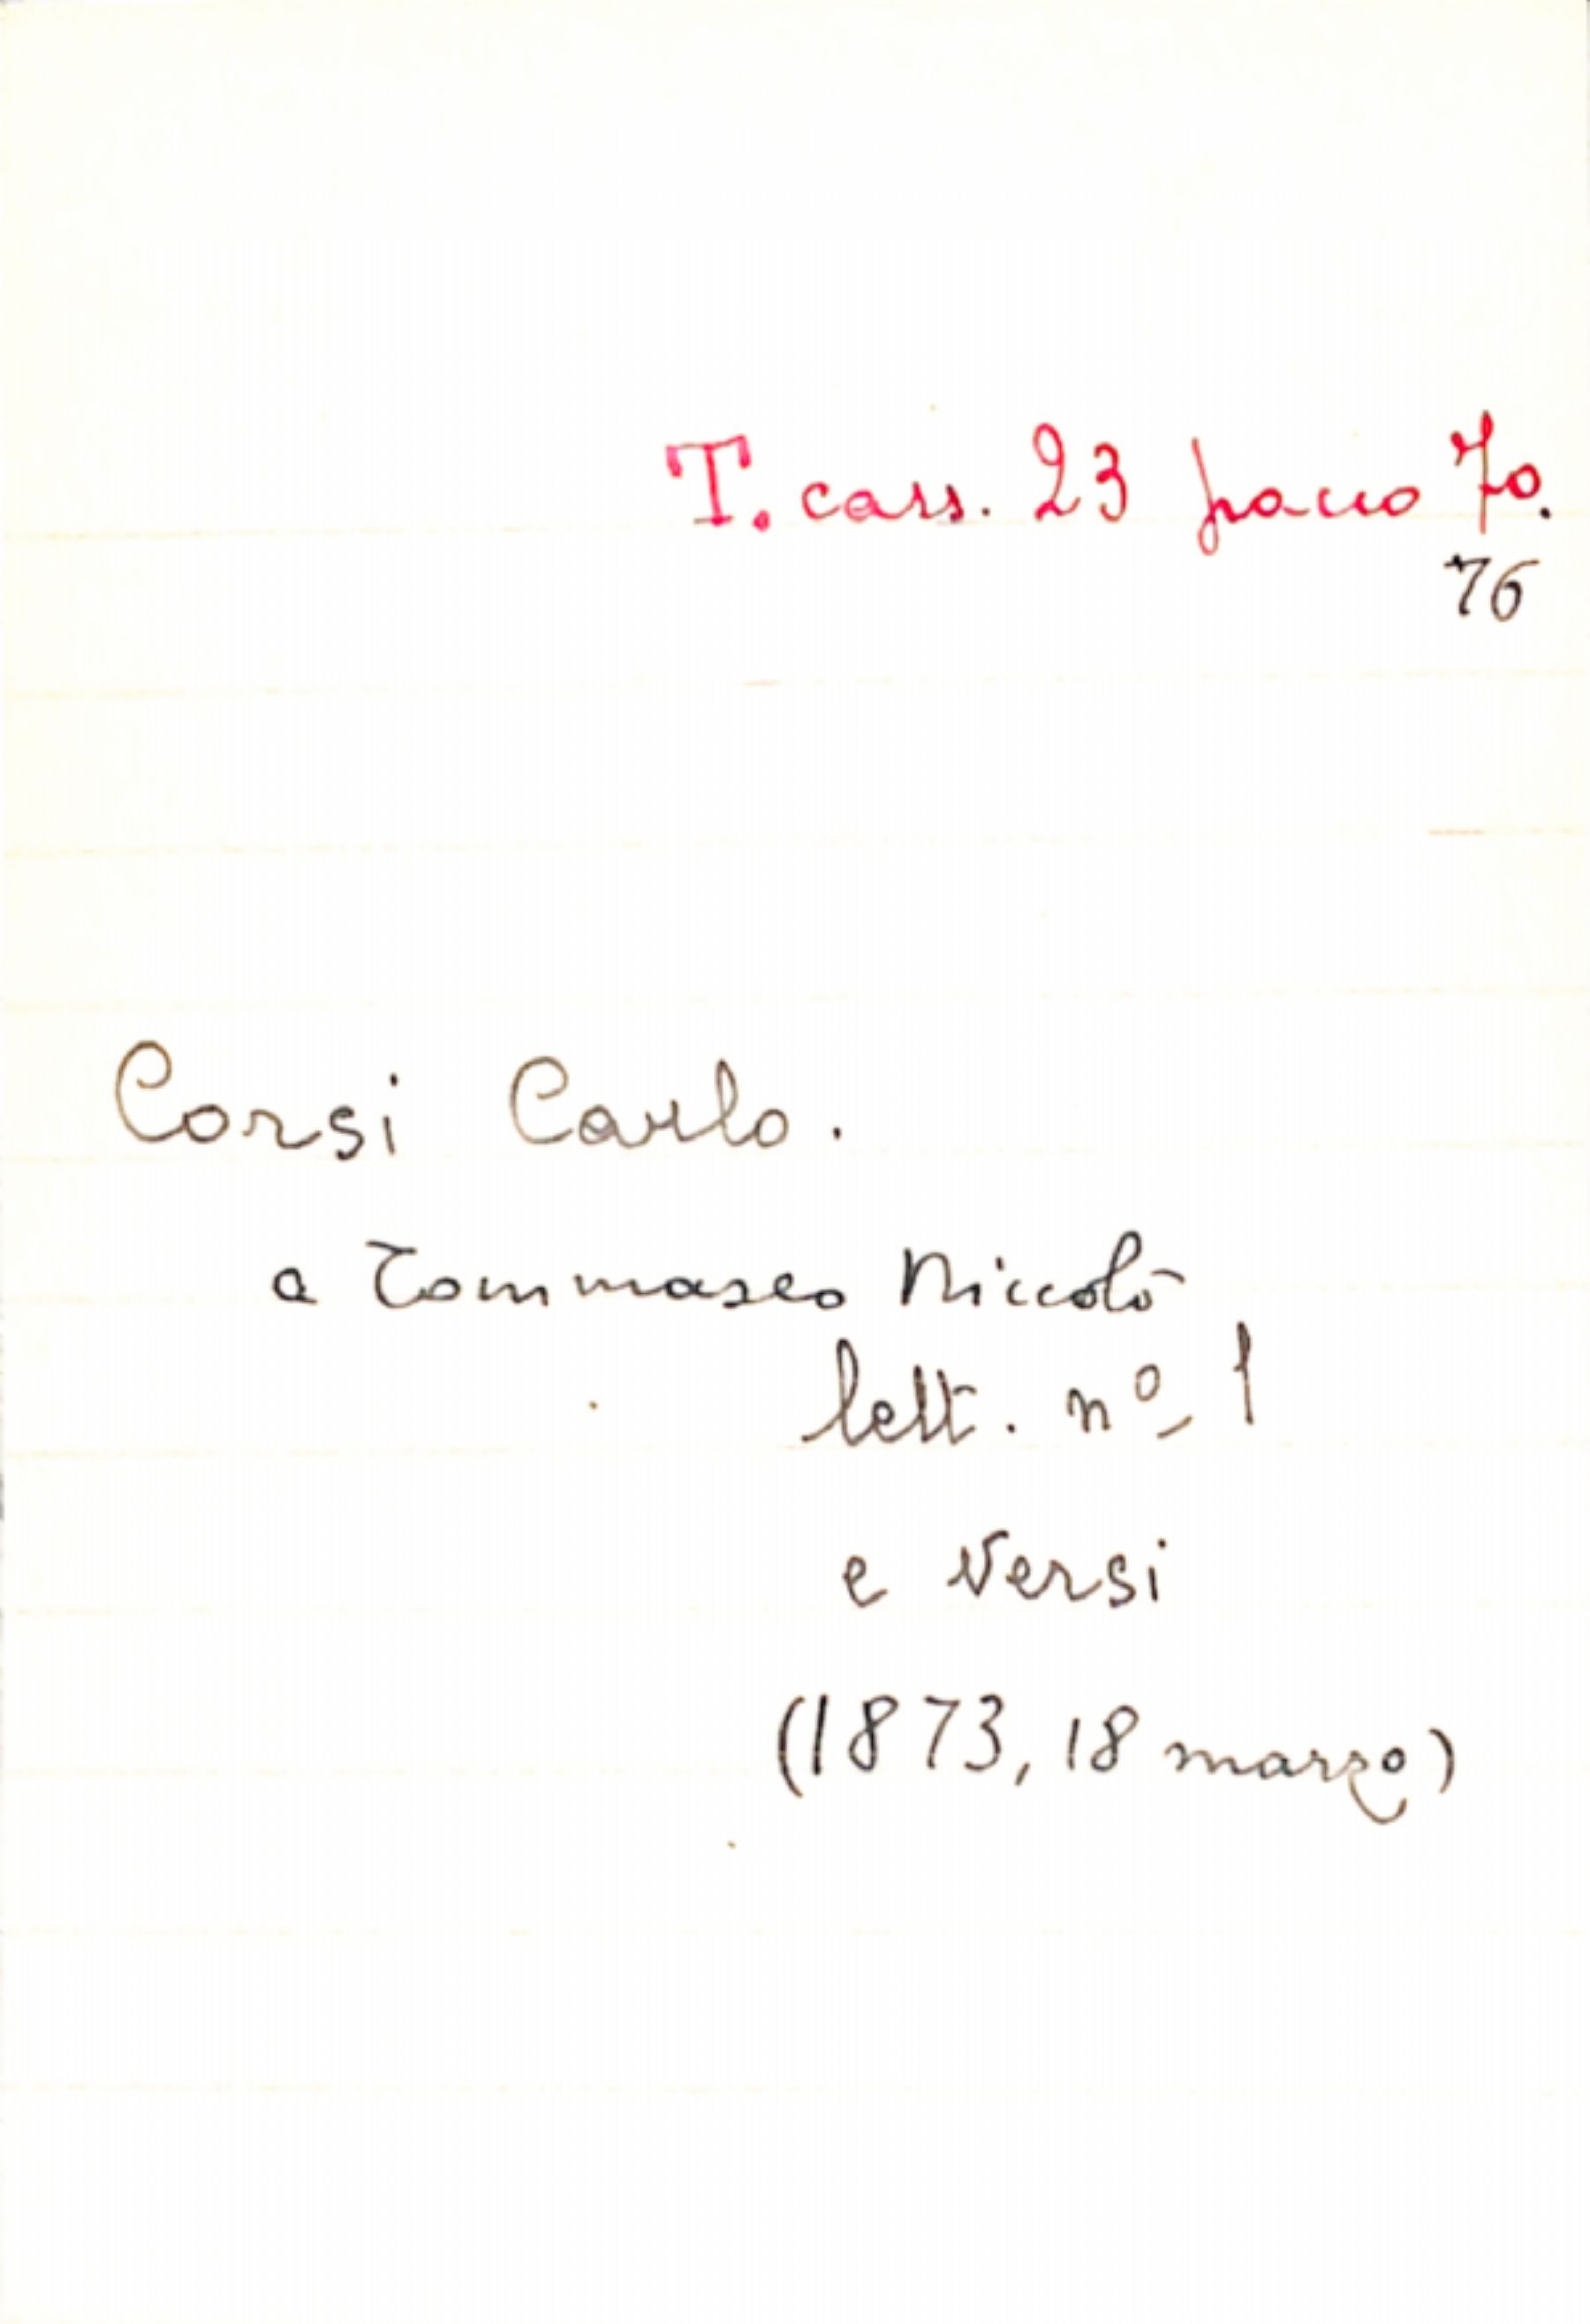 T. cass. 23 pacco 70.
76
Corsi Carlo.
a Tommaseo Niccolò
lett. nº 1
e Versi
(1873, 18 marzo)